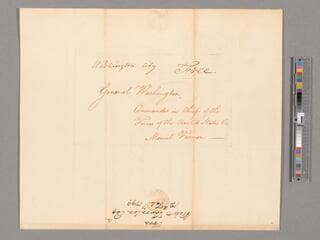 Washington City Free
General Washington,
Commander in Chief of the
Forces of the United States &c
Mount Vernon
From
1799